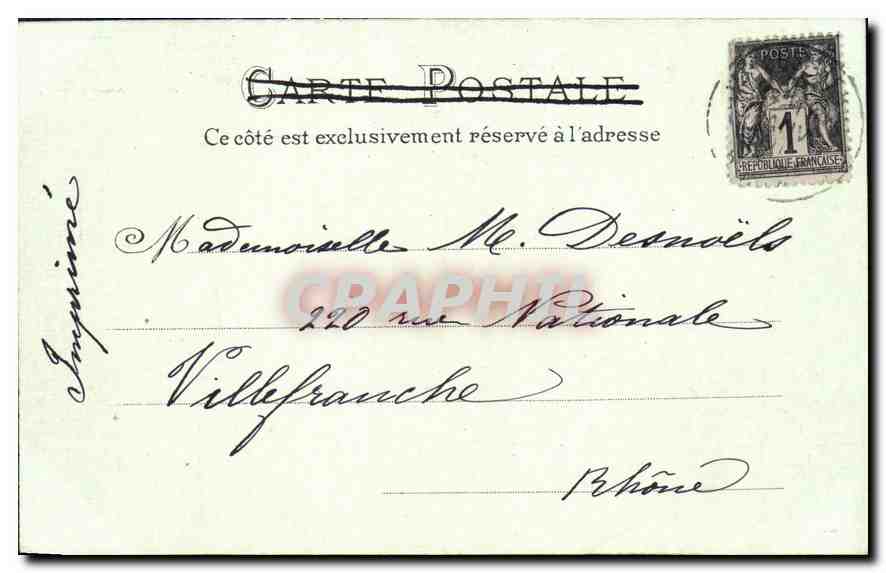 CARTE POSTALE
Ce côté est exclusivement réservé à l'adresse
POSTE
1
RÉPUBLIQUE FRANÇAISE
Imprimé
Mademoiselle M. Desnoëls
220 rue Nationale
Villefranche
Rhône
CRAPHIL